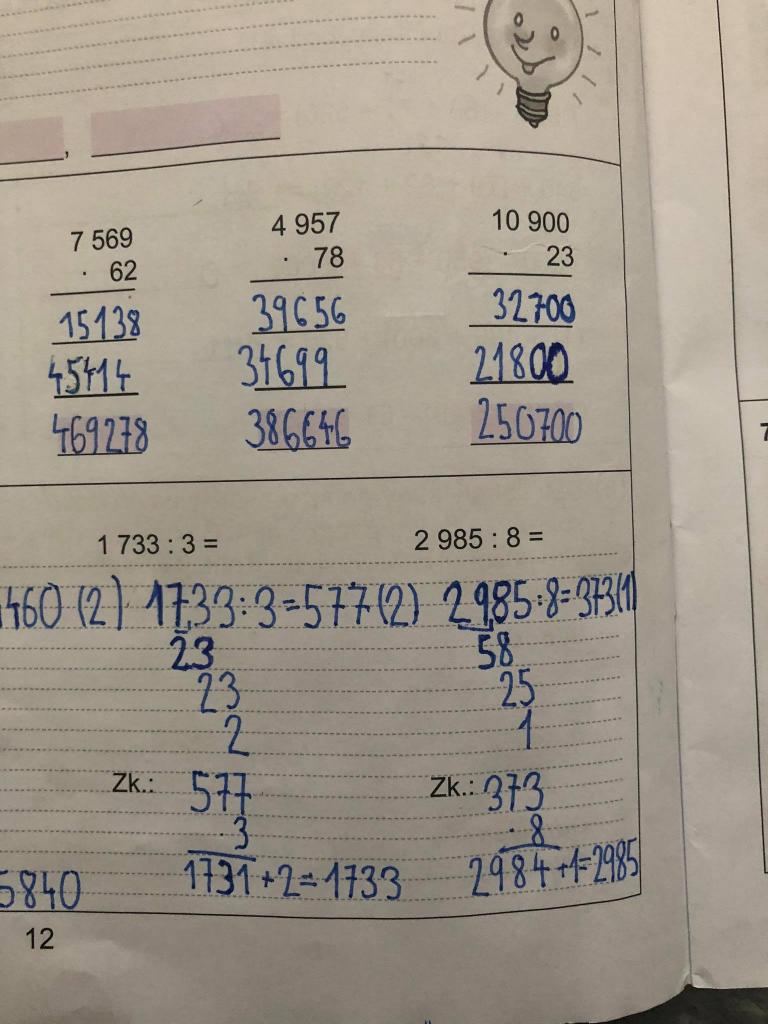 ,
7 569
· 62
15138
45414
469278
4 957
· 78
39656
34699
386646
10 900
· 23
32700
21800
250700
1 733 : 3 =
2 985 : 8 =
460 (2)
1733:3=577(2)
23
23
2
Zk.: 577
·3
1731+2=1733
2985:8=373(1)
58
25
1
Zk.: 373
·8
2984+1=2985
5840
12
7